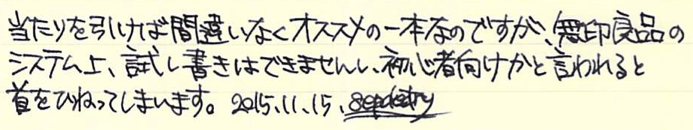 当たりを引ければ間違いなくオススメの一本なのですが、無印良品の
システム上、試し書きはできませんし、初心者向けかと言われると
首をひねってしまいます。2015.11.15、